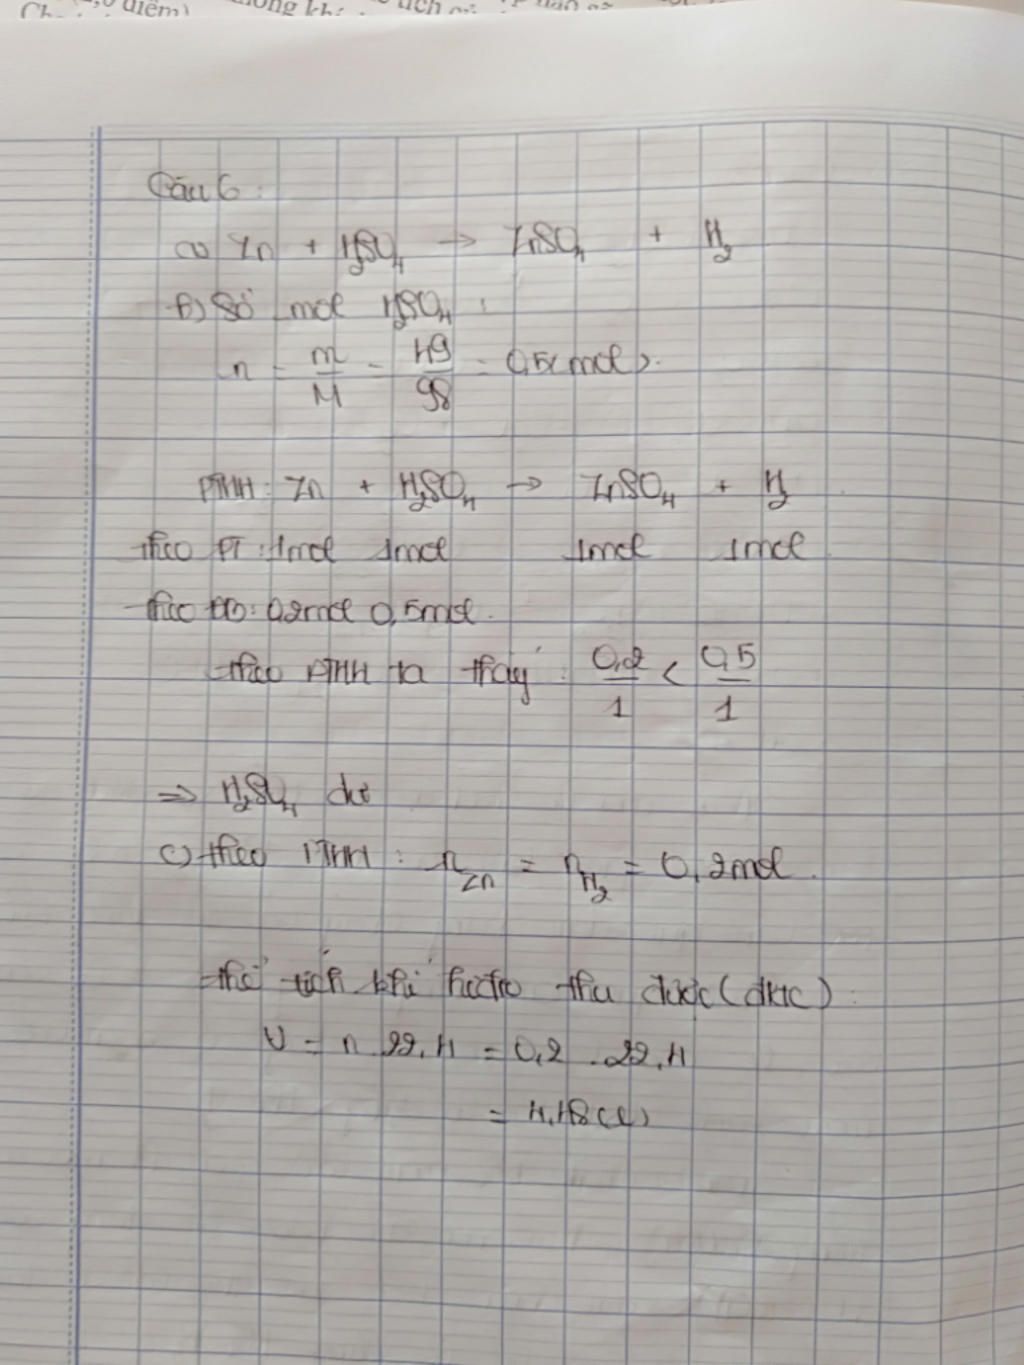 điểm)
Câu 6:
a) Zn + H₂SO₄ → ZnSO₄ + H₂
b) Số mol H₂SO₄:
n = m/M = 49/98 = 0,5(mol).
PTHH: Zn + H₂SO₄ → ZnSO₄ + H₂
theo PT: 1mol 1mol 1mol 1mol
theo ĐB: 0,2mol 0,5mol.
theo PTHH ta thấy: 0,2/1 < 0,5/1
⇒ H₂SO₄ dư
c) theo PTHH: n Zn = n H₂ = 0,2mol.
thể tích khí hiđro thu được (đktc):
V = n.22,4 = 0,2 .22,4
= 4,48(l)